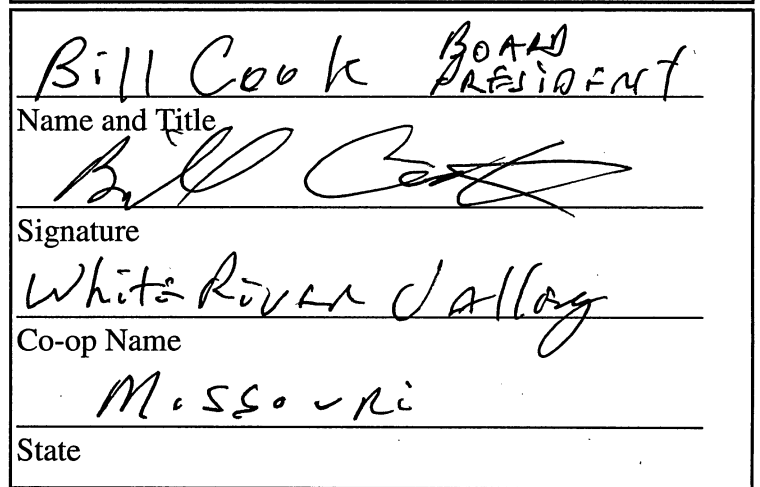 Bill Cook BOARD PRESIDENT
Name and Title
Bill Cook
Signature
White River Valley
Co-op Name
Missouri
State